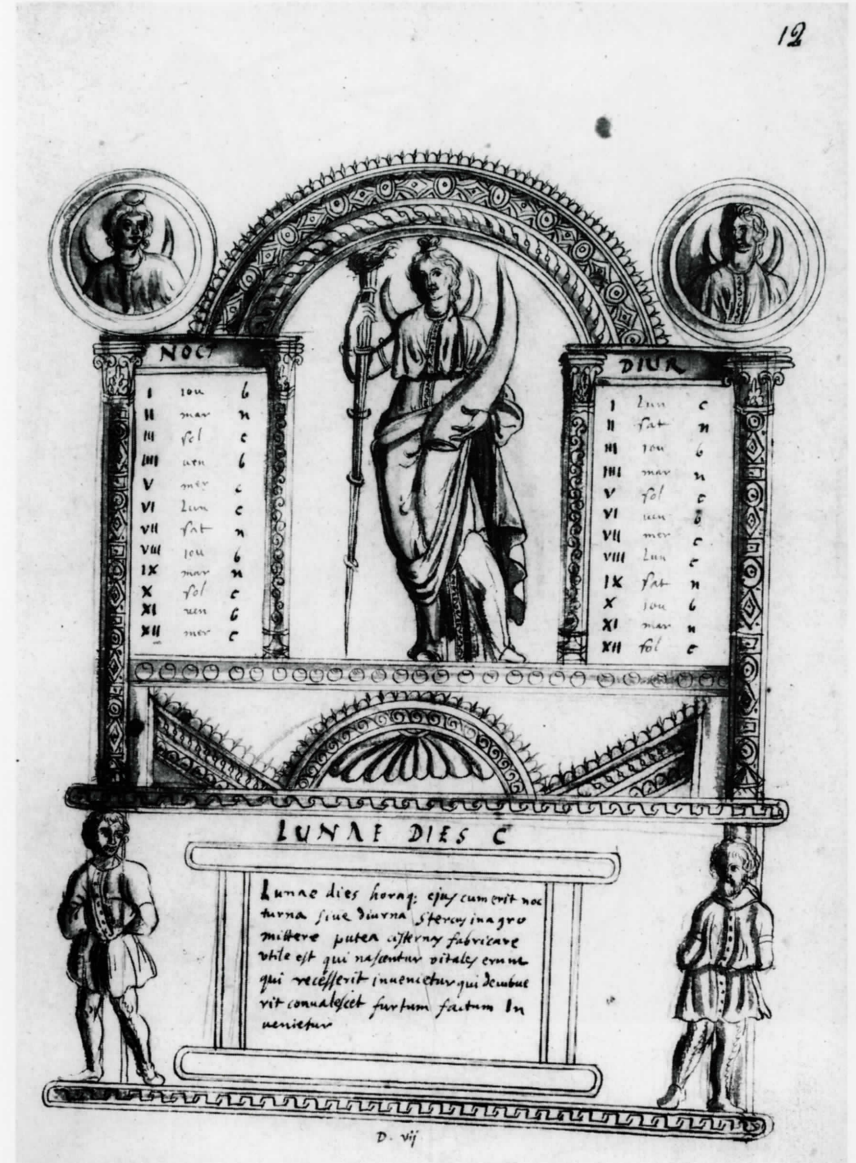 12
NOCT
I iou b
II mar n
III sol c
IIII uen b
V mer c
VI Lun c
VII sat n
VIII iou b
IX mar n
X sol c
XI uen b
XII mer c
DIUR
I Lun c
II sat n
III iou b
IIII mar n
V sol c
VI uen b
VII mer c
VIII Lun c
IX sat n
X iou b
XI mar n
XII sol c
LUNAE DIES C
Lunae dies horaq; ejus cum erit noc
turna siue diurna stercus in agro
mittere putea cisternas fabricare
vtile est qui nascentur vitales erunt
qui recesserit inuenietur qui decubue
rit conualescet furtum factum In
uenietur
D. vij